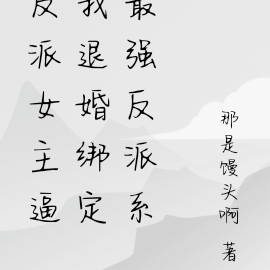 最强反派系
我退婚绑定
反派女主逼
那是馒头啊 著